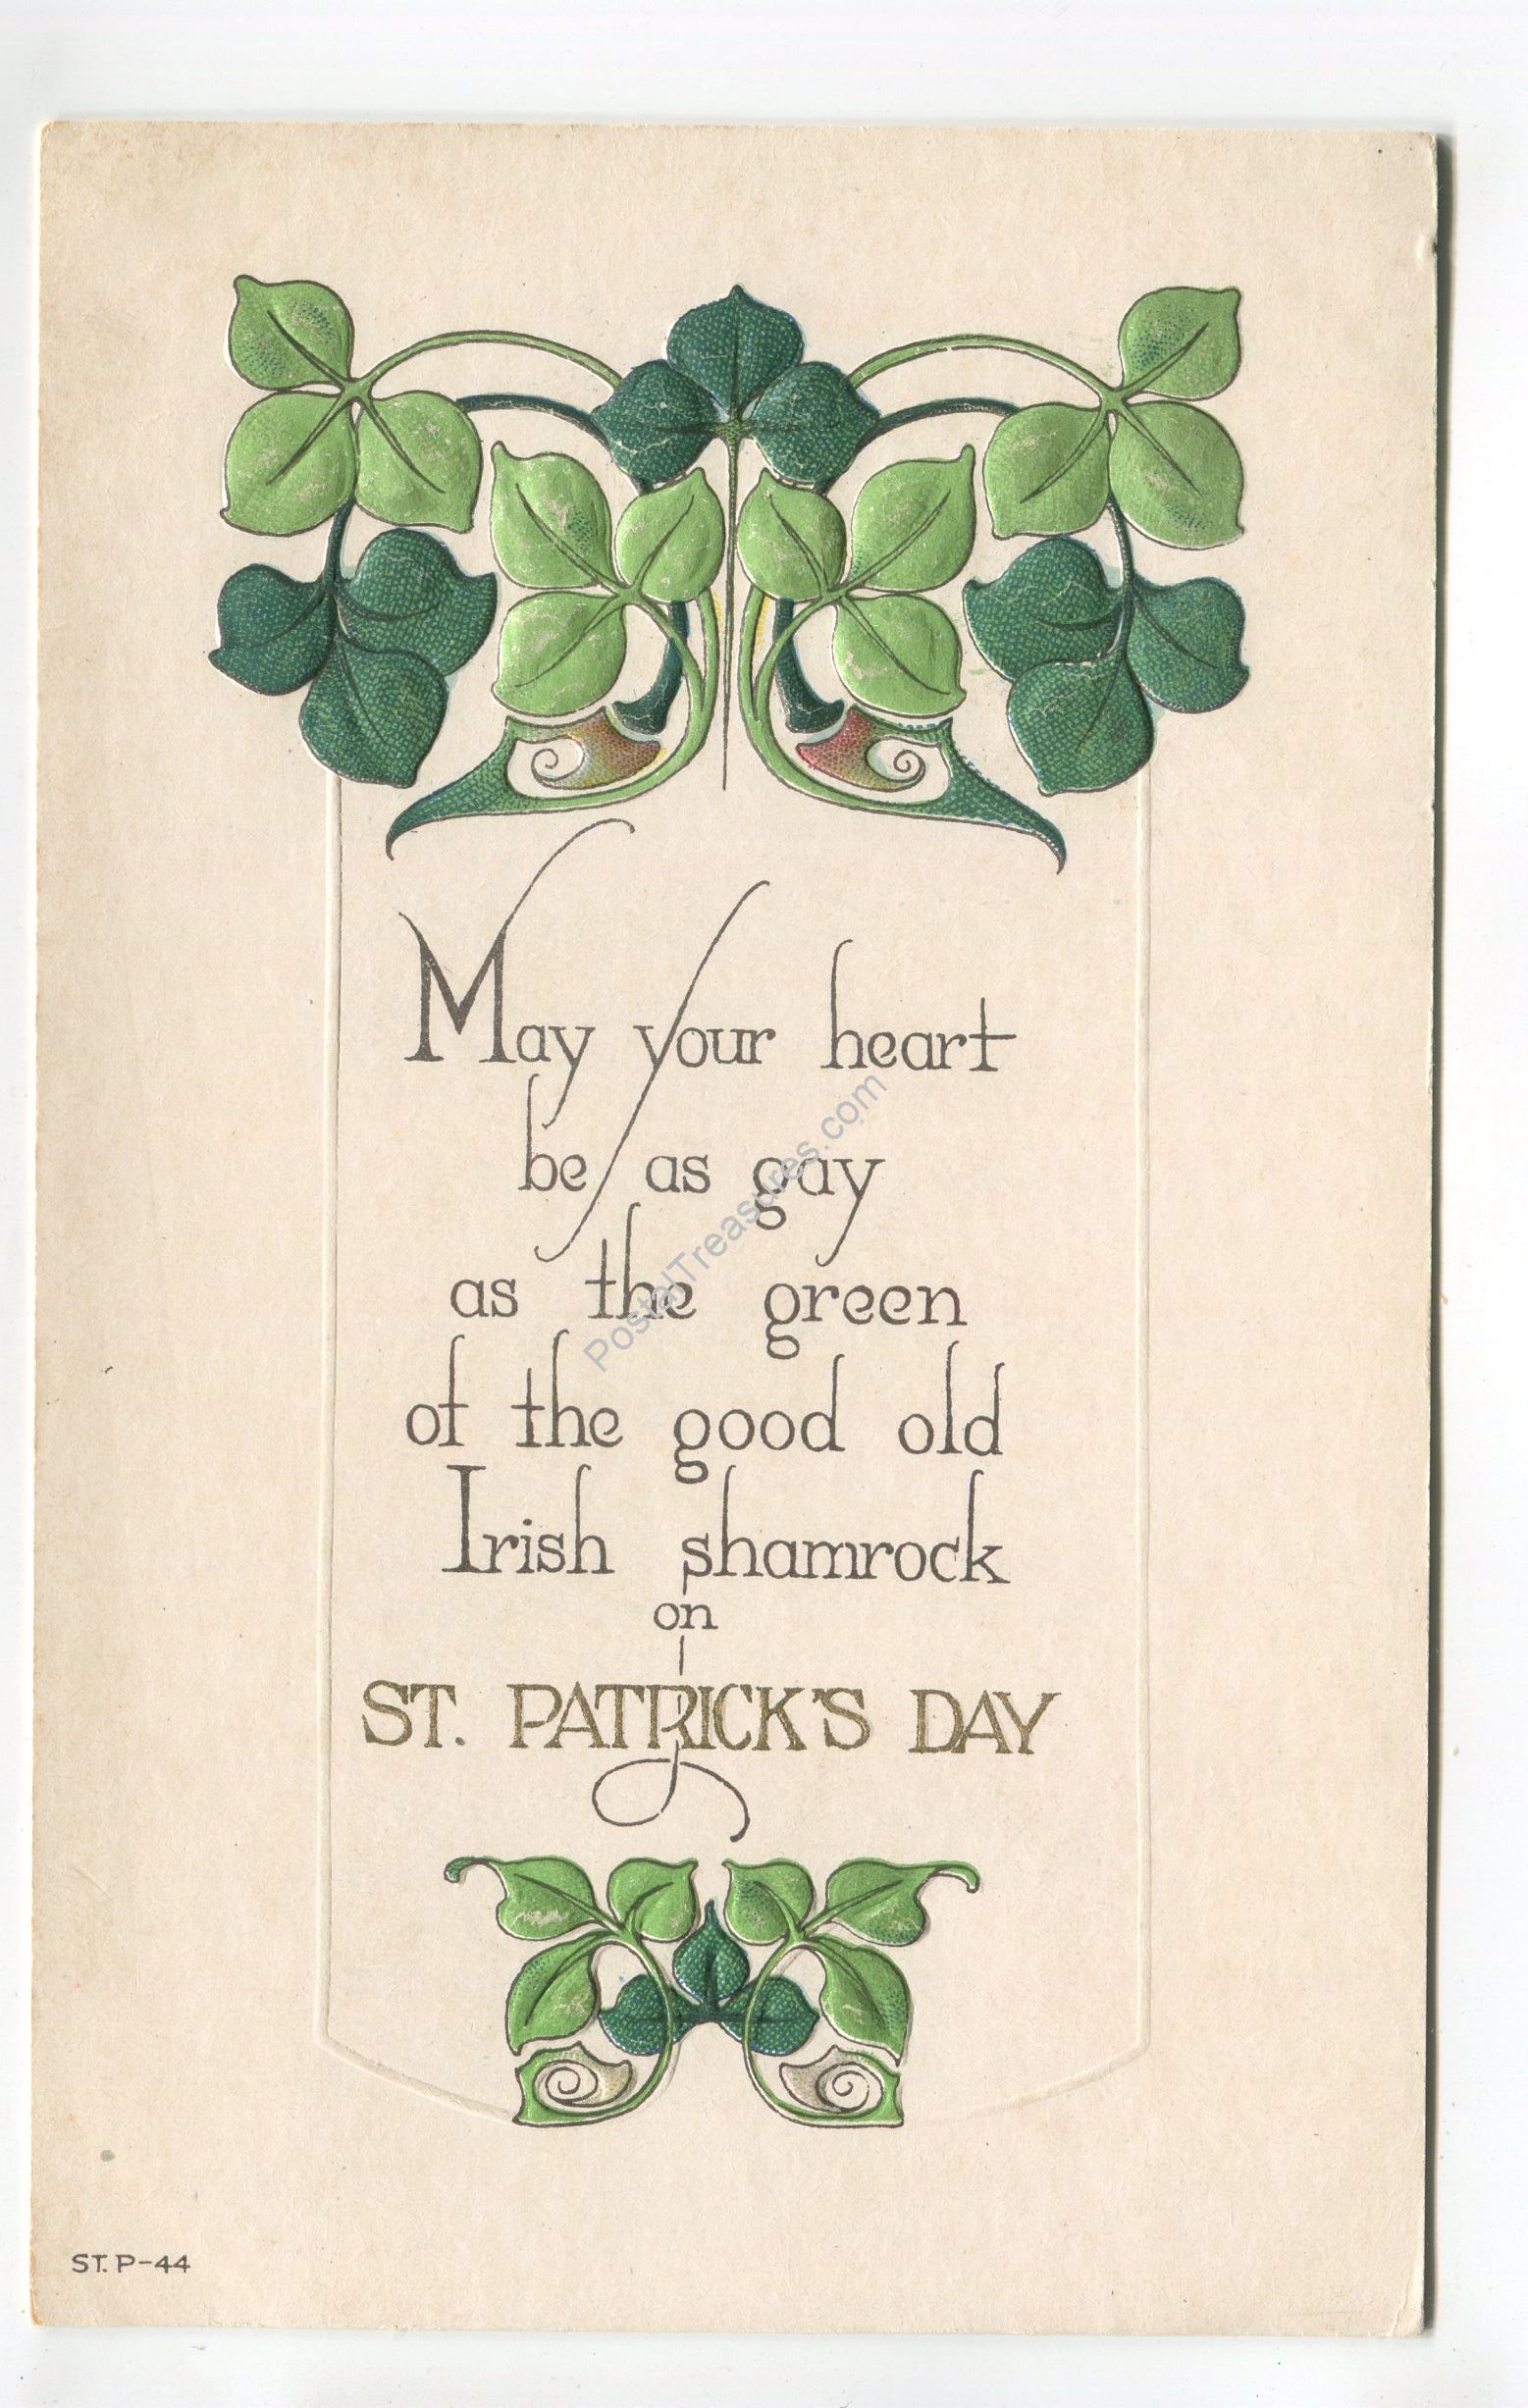 May your heart
be as gay
as the green
of the good old
Irish shamrock
on
ST. PATRICK'S DAY
ST. P-44
PostalTreasures.com